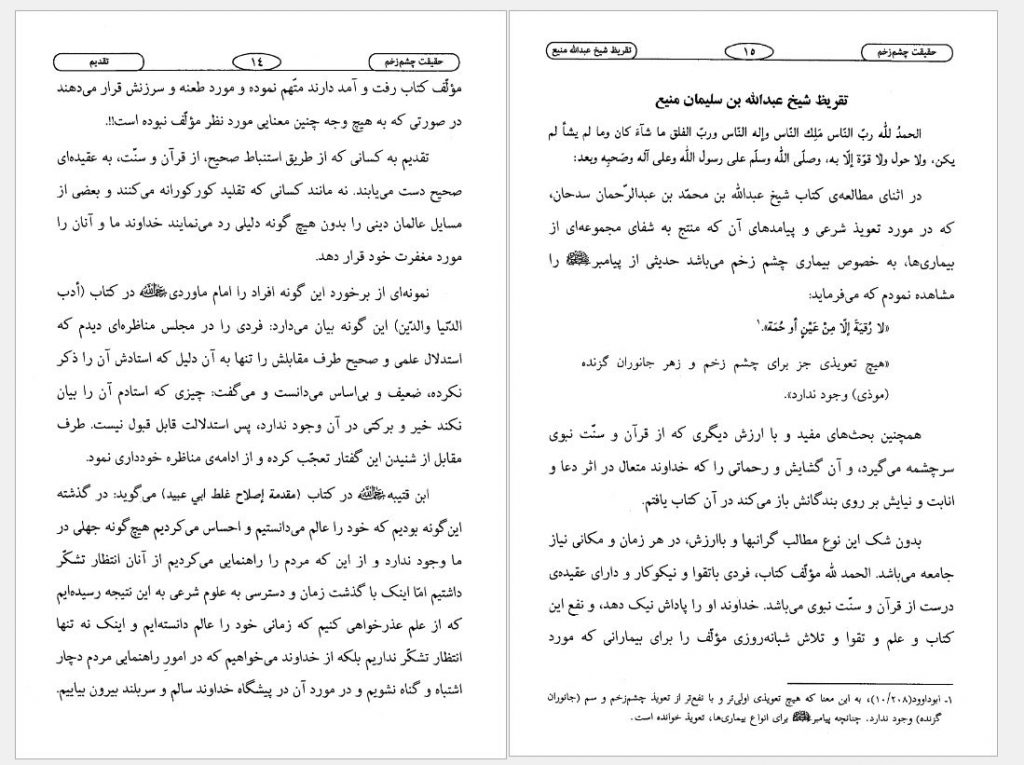 حقیقت چشم‌زخم
١٤
تقدیم
مؤلّف کتاب رفت و آمد دارند متّهم نموده و مورد طعنه و سرزنش قرار می‌دهند
در صورتی که به هیچ وجه چنین معنایی مورد نظر مؤلّف نبوده است!!.
تقدیم به کسانی که از طریق استنباط صحیح، از قرآن و سنّت، به عقیده‌ای
صحیح دست می‌یابند. نه مانند کسانی که تقلید کورکورانه می‌کنند و بعضی از
مسایل عالمان دینی را بدون هیچ گونه دلیلی رد می‌نمایند خداوند ما و آنان را
مورد مغفرت خود قرار دهد.
نمونه‌ای از برخورد این گونه افراد را امام ماوردی در کتاب (أدب
الدّنیا والدّین) این گونه بیان می‌دارد: فردی را در مجلس مناظره‌ای دیدم که
استدلال علمی و صحیح طرف مقابلش را تنها به آن دلیل که استادش آن را ذکر
نکرده، ضعیف و بی‌اساس می‌دانست و می‌گفت: چیزی که استادم آن را بیان
نکند خیر و برکتی در آن وجود ندارد، پس استدلالت قابل قبول نیست. طرف
مقابل از شنیدن این گفتار تعجّب کرده و از ادامه‌ی مناظره خودداری نمود.
ابن قتیبه در کتاب (مقدمة إصلاح غلط ابي عبید) می‌گوید: در گذشته
این‌گونه بودیم که خود را عالم می‌دانستیم و احساس می‌کردیم هیچ‌گونه جهلی در
ما وجود ندارد و از این که مردم را راهنمایی می‌کردیم از آنان انتظار تشکّر
داشتیم امّا اینک با گذشت زمان و دسترسی به علوم شرعی به این نتیجه رسیده‌ایم
که از علم عذرخواهی کنیم که زمانی خود را عالم دانسته‌ایم و اینک نه تنها
انتظار تشکّر نداریم بلکه از خداوند می‌خواهیم که در امورِ راهنمایی مردم دچار
اشتباه و گناه نشویم و در مورد آن در پیشگاه خداوند سالم و سربلند بیرون بیاییم.
حقیقت چشم‌زخم
١٥
تقریظ شیخ عبدالله منیع
تقریظ شیخ عبدالله بن سلیمان منیع
الحمدُ للّه ربّ النّاس مَلِك النّاس وإله النّاس وربّ الفلق ما شآءَ كان وما لم يشأ لم
يكن، ولا حول ولا قوّة إلّا به، وصلّى اللّه وسلّم على رسول اللّه وعلى آله وصَحبِه وبعد:
در اثنای مطالعه‌ی کتاب شیخ عبدالله بن محمّد بن عبدالرّحمان سدحان،
که در مورد تعویذ شرعی و پیامدهای آن که منتج به شفای مجموعه‌ای از
بیماری‌ها، به خصوص بیماری چشم زخم می‌باشد حدیثی از پیامبرﷺ را
مشاهده نمودم که می‌فرماید:
«لا رُقیَةَ إلّا مِنْ عَیْنٍ أو حُمَة».١
«هیچ تعویذی جز برای چشم زخم و زهر جانوران گزنده
(موذی) وجود ندارد».
همچنین بحث‌های مفید و با ارزش دیگری که از قرآن و سنّت نبوی
سرچشمه می‌گیرد، و آن گشایش و رحماتی را که خداوند متعال در اثر دعا و
انابت و نیایش بر روی بندگانش باز می‌کند در آن کتاب یافتم.
بدون شک این نوع مطالب گرانبها و باارزش، در هر زمان و مکانی نیاز
جامعه می‌باشد. الحمد لله مؤلّف کتاب، فردی باتقوا و نیکوکار و دارای عقیده‌ی
درست از قرآن و سنّت نبوی می‌باشد. خداوند او را پاداش نیک دهد، و نفع این
کتاب و علم و تقوا و تلاش شبانه‌روزی مؤلّف را برای بیمارانی که مورد
١- ابوداوود(١٠/٢٠٨)، به این معنا که هیچ تعویذی اولی‌تر و با نفع‌تر از تعویذ چشم‌زخم و سم (جانوران
گزنده) وجود ندارد. چنانچه پیامبرﷺ برای انواع بیماری‌ها، تعویذ خوانده است.